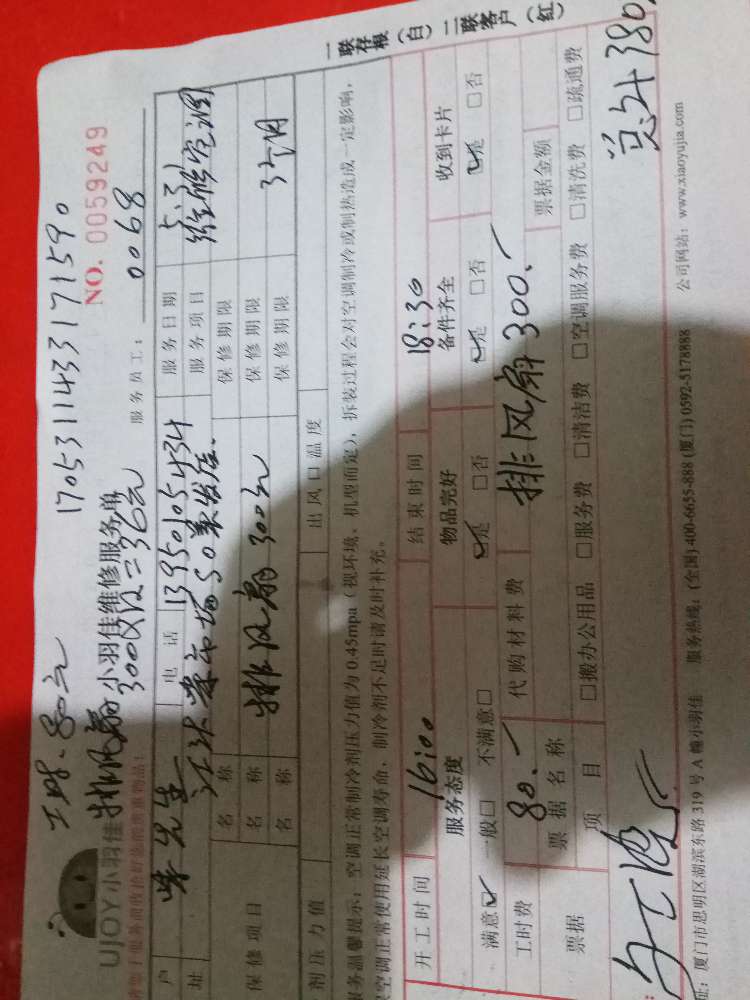 一联存根（白） 二联客户（红）
工时：80元 17053114331 71590
NO. 0059249
排风扇
300 36元
UJOY小羽佳 小羽佳维修服务单
服务员工： 0068
户 电话 13950105434 服务日期
址 服务项目 维修空调
保修项目 名称 保修期限
名称 排风扇 300元 保修期限
名称 保修期限 3个月
剂压力值 出风口温度
服务温馨提示：空调正常制冷剂压力值为0.45mpa（视环境、机型而定），拆装过程会对空调制冷或制热造成一定影响，
空调正常使用延长空调寿命，制冷剂不足时请及时补充。
开工时间 16:00 结束时间 18:30
服务态度 物品完好 备件齐全 收到卡片
满意☑ 一般□ 不满意□ ☑是 □否 ☑是 □否 ☑是 □否
工时费 80.- 代购材料费 排风扇 300.-
票据 票据名称 票据金额
项目 □搬办公用品 □服务费 □清洁费 □空调服务费 □清洗费 □疏通费
总计 380
址：厦门市思明区湖滨东路319号A幢小羽佳 服务热线：(全国) 400-6655-888 (厦门) 0592-5178888 公司网站：www.xiaoyujia.com